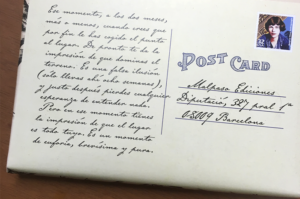 Ese momento, a los dos meses,
más o menos, cuando crees que
por fin le has cogido el punto
al lugar. De pronto te da la
impresión de que dominas el
terreno. Es una falsa ilusión
(solo llevas ahí ocho semanas),
y justo después pierdes cualquier
esperanza de entender nada.
Pero en ese momento tienes
la impresión de que el lugar
es todo tuyo. Es un momento
de euforia, brevísima y pura.
POST CARD
Malpaso Ediciones
Diputació, 327 pral 1ª
08009 Barcelona